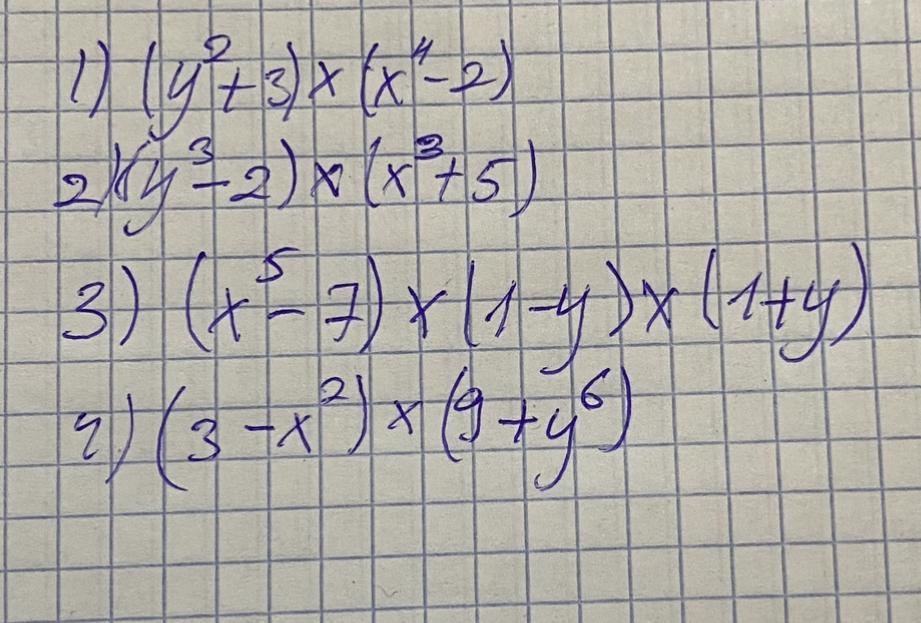 1) (y²+3)×(x⁴-2)
2) (y³-2)×(x³+5)
3) (x⁵-7)×(1-y)×(1+y)
4) (3-x²)×(9+y⁶)